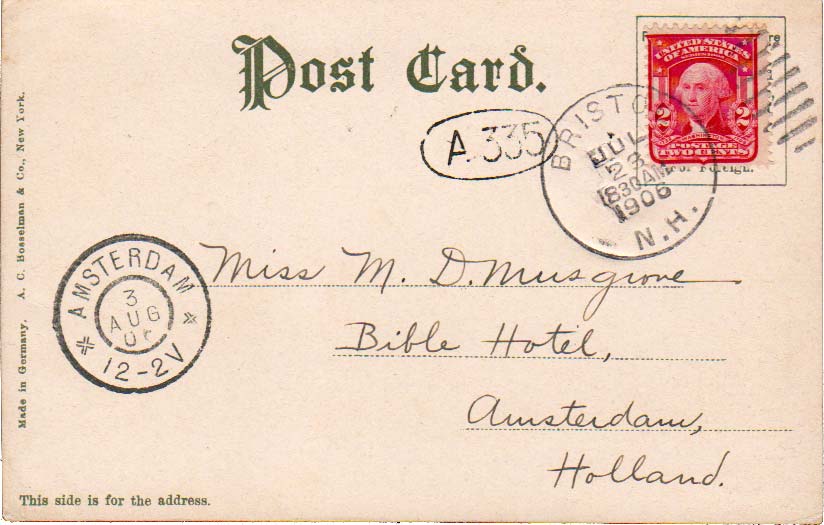 Post Card.
UNITED STATES
OF AMERICA
2 2
POSTAGE
TWO CENTS
For Foreign.
A 335
BRISTOL
JUL
23
830AM
1906
N.H.
AMSTERDAM
3
AUG
12-2V
Miss M. D. Musgrove
Bible Hotel,
Amsterdam,
Holland.
Made in Germany. A. C. Bosselman & Co., New York.
This side is for the address.